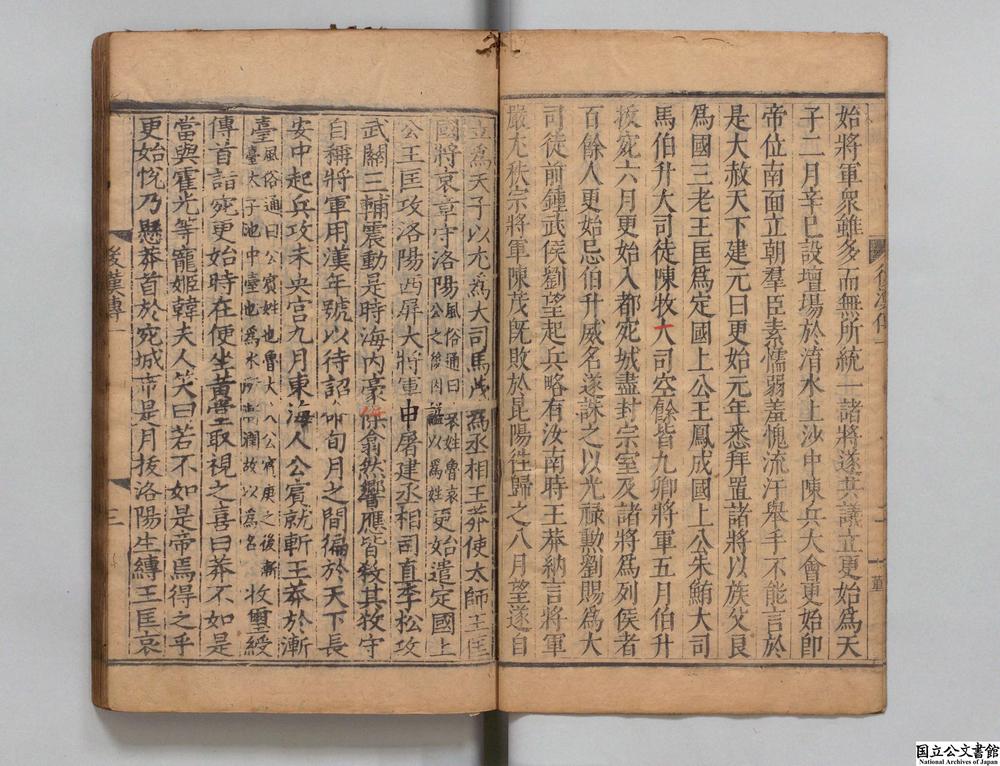 始將軍衆雖多而無所統一諸將遂共議立更始爲天
子二月辛巳設壇場於淯水上沙中陳兵大會更始即
帝位南面立朝羣臣素懦弱羞愧流汗舉手不能言於
是大赦天下建元曰更始元年悉拜置諸將以族父良
爲國三老王匡爲定國上公王鳳成國上公朱鮪大司
馬伯升大司徒陳牧大司空餘皆九卿將軍五月伯升
拔宛六月更始入都宛城盡封宗室及諸將爲列侯者
百餘人更始忌伯升威名遂誅之以光祿勲劉賜爲大
司徒前鍾武侯劉望起兵略有汝南時王莽納言將軍
嚴尤秩宗將軍陳茂既敗於昆陽往歸之八月望遂自
立爲天子以尤爲大司馬茂爲丞相王莽使太師王匡
國將哀章守洛陽風俗通曰哀姓魯哀公之後因謚以爲姓更始遣定國上
公王匡攻洛陽西屏大將軍申屠建丞相司直李松攻
武關三輔震動是時海内豪傑翕然響應皆殺其牧守
自稱將軍用漢年號以待詔命旬月之間徧於天下長
安中起兵攻未央宫九月東海人公賓就斬王莽於漸
臺風俗通曰公賓姓也魯大夫公賓庚之後漸臺太子池中臺也爲水所漸潤故以爲名收璽綬
傳首詣宛更始時在便坐黄堂取視之喜曰莽不如是
當與霍光等寵姬韓夫人笑曰若不如是帝焉得之乎
更始悦乃懸莽首於宛城市是月拔洛陽生縛王匡哀
後漢傳一
三
国立公文書館
National Archives of Japan